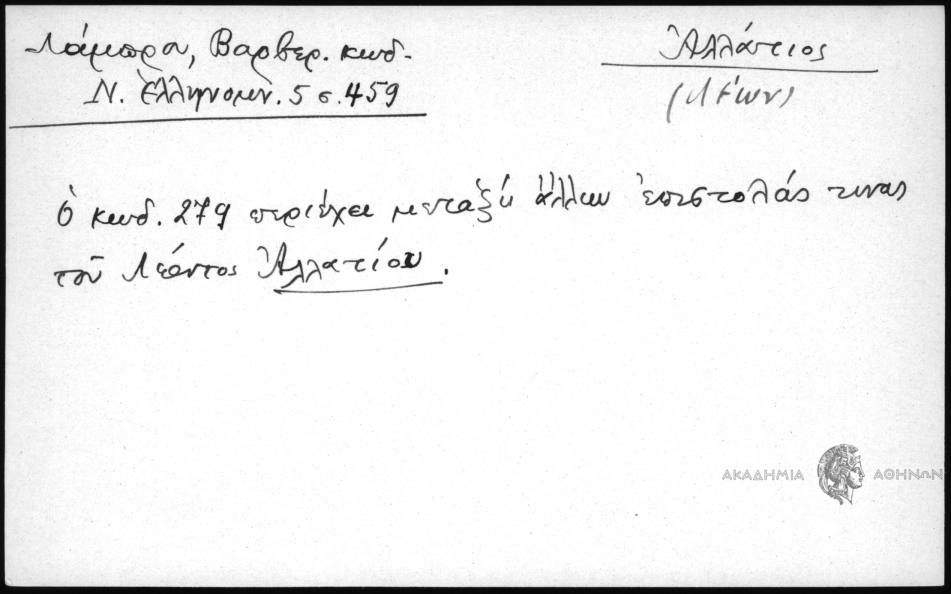 Λάμπρου, Βαρβερ. κωδ.
Ν. Ἑλληνομν. 5 σ. 459
Ἀλλάτιος
(Λέων)
ὁ κωδ. 279 περιέχει μεταξὺ ἄλλων ἐπιστολάς τινας
τοῦ Λέοντος Ἀλλατίου.
ΑΚΑΔΗΜΙΑ ΑΘΗΝΩΝ